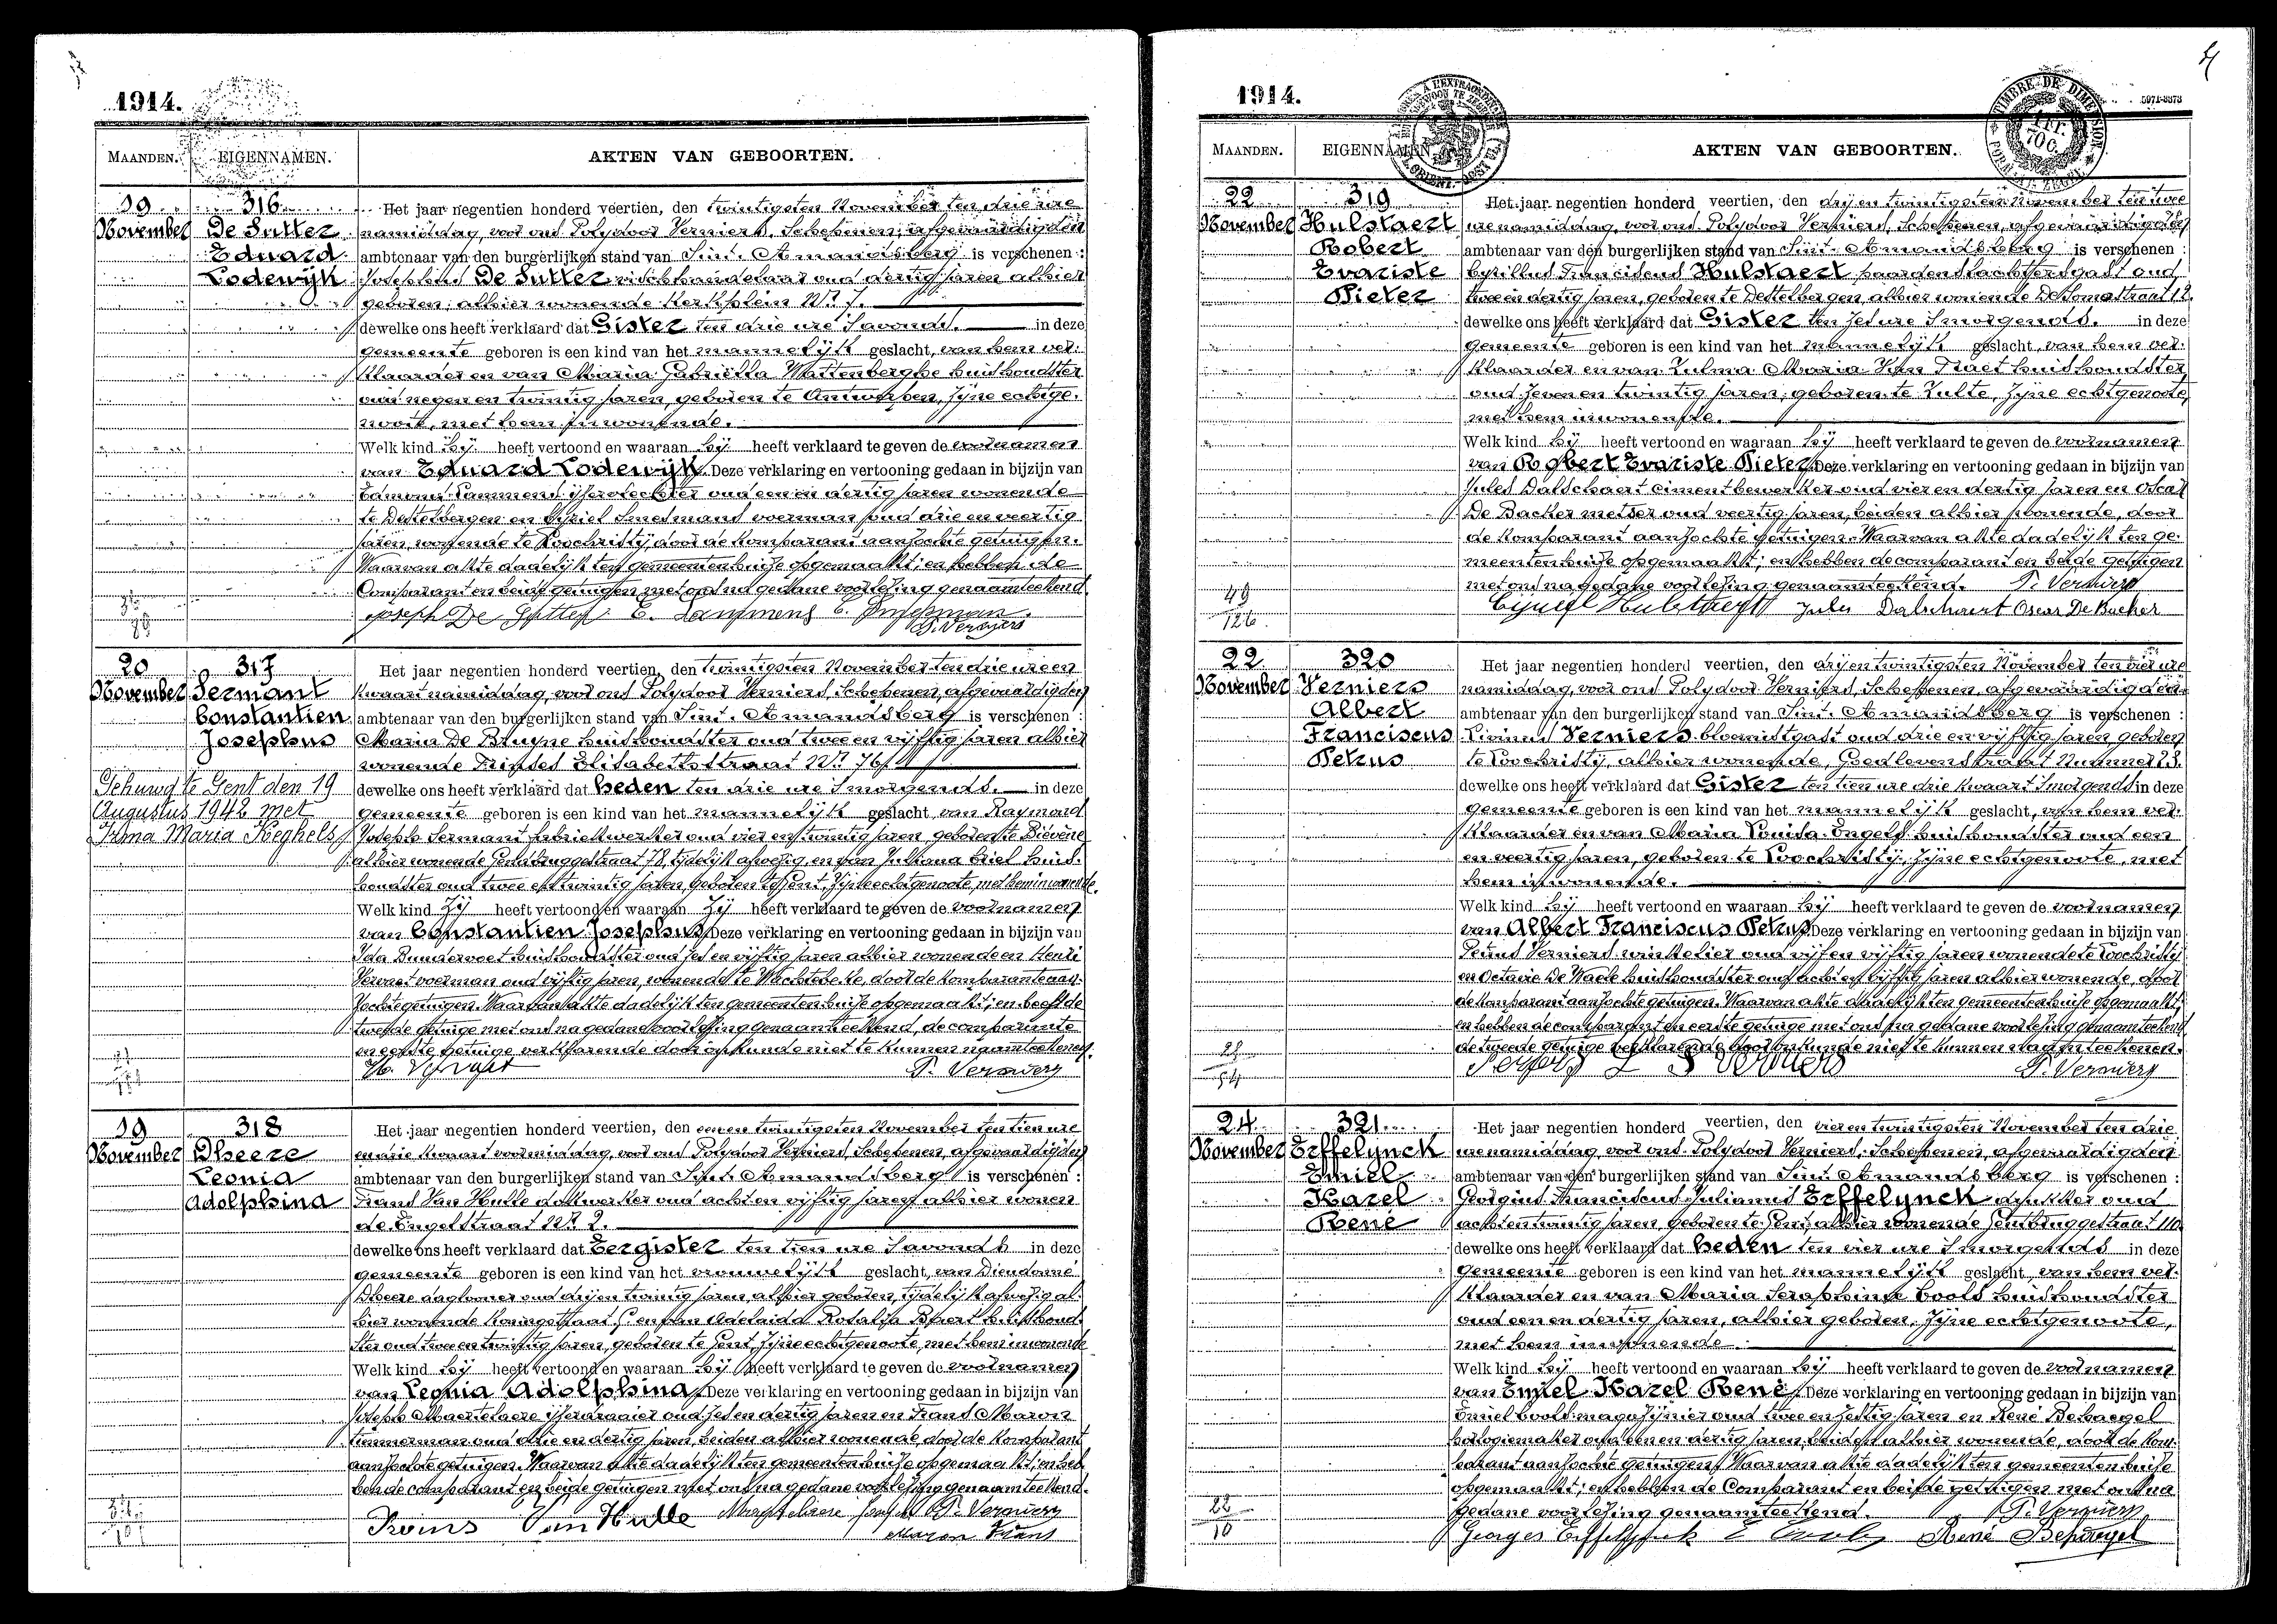 1914.
MAANDEN. EIGENNAMEN. AKTEN VAN GEBOORTEN.
19 November
316
De Sutter
Eduard
Lodewijk
Het jaar negentien honderd veertien, den twintigsten November ten drie ure
namiddag, voor ons Polydoor Verniers, Schepenen, afgevaardigden
ambtenaar van den burgerlijken stand van Sint-Amandsberg is verschenen :
Josephus De Sutter vischhandelaar oud dertig jaren alhier
geboren, alhier wonende Kerkplein Nr 7.
dewelke ons heeft verklaard dat Gister ten drie ure 's avonds. in deze
gemeente geboren is een kind van het mannelijk geslacht, van hem ver-
klaarder en van Maria Gabriella Wattenberghe huishoudster
oud negen en twintig jaren, geboren te Antwerpen, zijne echtge-
noote, met hem inwonende.
Welk kind hij heeft vertoond en waaraan hij heeft verklaard te geven de voornamen
van Eduard Lodewijk. Deze verklaring en vertooning gedaan in bijzijn van
Edmond Lammens oud een en dertig jaren wonende
te Destelbergen en voerman oud drie en veertig
jaren, wonende te Loochristy, door de komparant aanzochte getuigen.
Waarvan akte dadelijk ten gemeentenhuize opgemaakt; en hebben de
Comparant en beide getuigen met ons na gedane voorlezing genaamteekend.
Joseph De Sutter E. Lammens
P. Verniers
20 November
317
Sermant
Constantien
Josephus
Gehuwd te Gent den 19
Augustus 1942 met
Irma Maria Keghels
Het jaar negentien honderd veertien, den twintigsten November ten drie ure en
kwaart namiddag, voor ons Polydoor Verniers, Schepenen, afgevaardigden
ambtenaar van den burgerlijken stand van Sint-Amandsberg is verschenen :
Maria De Bruyne huishoudster oud twee en vijftig jaren alhier
wonende Prinses Elisabethstraat Nr 76.
dewelke ons heeft verklaard dat heden ten drie ure 's morgends. in deze
gemeente geboren is een kind van het mannelijk geslacht, van Raymond
Joseph Sermant fabriekwerker oud vier en twintig jaren, geboren te Bievene
alhier wonende Gendbruggestraat 78, tijdelijk afwezig, en van Juliana Criel huis-
houdster oud twee en twintig jaren, geboren te Gent, zijne echtgenoote, met hem inwonende.
Welk kind zij heeft vertoond en waaraan zij heeft verklaard te geven de voornamen
van Constantien Josephus. Deze verklaring en vertooning gedaan in bijzijn van
Ida huishoudster oud zes en vijftig jaren alhier wonende en Henri
Vervaet voerman oud vijftig jaren, wonende te Wachtebeke, door de komparante aan-
zochte getuigen. Waarvan akte dadelijk ten gemeentenhuize opgemaakt; en heeft de
tweede getuige met ons na gedane voorlezing genaamteekend, de comparante
en eerste getuige verklarende door onkunde niet te kunnen naamteekenen.
H. Vervaet P. Verniers
19 November
318
Dheere
Leonia
Adolphina
Het jaar negentien honderd veertien, den een en twintigsten November ten tien ure
en drie kwaart voormiddag, voor ons Polydoor Verniers, Schepenen, afgevaardigden
ambtenaar van den burgerlijken stand van Sint-Amandsberg is verschenen :
Frans Van Hulle dokwerker oud acht en vijftig jaren alhier wonen
de Engelstraat Nr 2.
dewelke ons heeft verklaard dat Eergister ten tien ure 's avonds in deze
gemeente geboren is een kind van het vrouwelijk geslacht, van Dieudonné
Dheere daglooner oud drij en twintig jaren alhier geboren, tijdelijk afwezig al-
hier wonende Koningstraat en van Adelaida Rosalia huishoud-
ster oud twee en twintig jaren, geboren te Gent, zijne echtgenoote, met hem inwonende
Welk kind hij heeft vertoond en waaraan hij heeft verklaard te geven de voornamen
van Leonia Adolphina. Deze verklaring en vertooning gedaan in bijzijn van
Joseph Maertelaere ijzerdraaier oud zes en dertig jaren en Frans Maron
timmerman oud drie en dertig jaren, beiden alhier wonende, door de komparant
aanzochte getuigen. Waarvan akte dadelijk ten gemeentenhuize opgemaakt; en heb-
ben de comparant en beide getuigen met ons na gedane voorlezing genaamteekend.
Van Hulle P. Verniers
Maron Frans
1914.
5971-8373
TIMBRE DE DIMENSION
MAANDEN. EIGENNAMEN. AKTEN VAN GEBOORTEN.
22 November
319
Hulstaert
Robert
Evariste
Pieter
Het jaar negentien honderd veertien, den drij en twintigsten November ten twee
ure namiddag, voor ons Polydoor Verniers, Schepenen, afgevaardigden
ambtenaar van den burgerlijken stand van Sint-Amandsberg is verschenen :
Cyrillus Franciscus Hulstaert paardenslachtersgast oud
twee en dertig jaren, geboren te Destelbergen, alhier wonende 12.
dewelke ons heeft verklaard dat Gister ten zes ure 's morgends. in deze
gemeente geboren is een kind van het mannelijk geslacht, van hem ver-
klaarder en van Zulma Maria Van Praet huishoudster
oud zeven en twintig jaren, geboren te Zulte, zijne echtgenoote,
met hem inwonende.
Welk kind hij heeft vertoond en waaraan hij heeft verklaard te geven de voornamen
van Robert Evariste Pieter. Deze verklaring en vertooning gedaan in bijzijn van
Jules Dalschaert cimentbewerker oud vier en dertig jaren en Oscar
De Backer metser oud veertig jaren, beiden alhier wonende, door
de komparant aanzochte getuigen. Waarvan akte dadelijk ten ge-
meentenhuize opgemaakt; en hebben de comparant en beide getuigen
met ons na gedane voorlezing genaamteekend. P. Verniers
Hulstaert Jules Dalschaert Oscar De Backer
49
126
22 November
320
Verniers
Albert
Franciscus
Petrus
Het jaar negentien honderd veertien, den drij en twintigsten November ten vier ure
namiddag, voor ons Polydoor Verniers, Schepenen, afgevaardigden
ambtenaar van den burgerlijken stand van Sint-Amandsberg is verschenen :
Livinus Verniers bloemistgast oud drie en vijftig jaren, geboren
te Loochristy, alhier wonende, Goedlevenstraat Nummer 23.
dewelke ons heeft verklaard dat Gister ten tien ure drie kwaart 's morgends in deze
gemeente geboren is een kind van het mannelijk geslacht, van hem ver-
klaarder en van Maria Louisa Engels huishoudster oud een
en veertig jaren, geboren te Loochristy, zijne echtgenoote, met
hem inwonende.
Welk kind hij heeft vertoond en waaraan hij heeft verklaard te geven de voornamen
van Albert Franciscus Petrus. Deze verklaring en vertooning gedaan in bijzijn van
Verniers winkelier oud vijf en vijftig jaren wonende te Loochristy
en Octavie De Waele huishoudster oud acht en vijftig jaren alhier wonende, door
de komparant aanzochte getuigen. Waarvan akte dadelijk ten gemeentenhuize opgemaakt;
en hebben de comparant en eerste getuige met ons na gedane voorlezing genaamteekend
de tweede getuige verklarende door onkunde niet te kunnen naamteekenen.
P. Verniers
24 November
321
Erffelynck
Emiel
Karel
René
Het jaar negentien honderd veertien, den vier en twintigsten November ten drie
ure namiddag, voor ons Polydoor Verniers, Schepenen, afgevaardigden
ambtenaar van den burgerlijken stand van Sint-Amandsberg is verschenen :
Georgius Franciscus Julianus Erffelynck drukker oud
acht en twintig jaren, geboren te Gent, alhier wonende Gentbruggestraat 110
dewelke ons heeft verklaard dat heden ten vier ure 's morgends in deze
gemeente geboren is een kind van het mannelijk geslacht, van hem ver-
klaarder en van Maria Seraphina Cools huishoudster
oud een en dertig jaren, alhier geboren, zijne echtgenoote,
met hem inwonende.
Welk kind hij heeft vertoond en waaraan hij heeft verklaard te geven de voornamen
van Emiel Karel René. Deze verklaring en vertooning gedaan in bijzijn van
Emiel Cools magazijnier oud twee en zestig jaren en René Behaegel
horlogiemaker oud een en dertig jaren, beiden alhier wonende, door de kom-
parant aanzochte getuigen. Waarvan akte dadelijk ten gemeentenhuize
opgemaakt; en hebben de Comparant en beide getuigen met ons na
gedane voorlezing genaamteekend. P. Verniers
Georges Erffelynck E. Cools René Behaegel
22
10